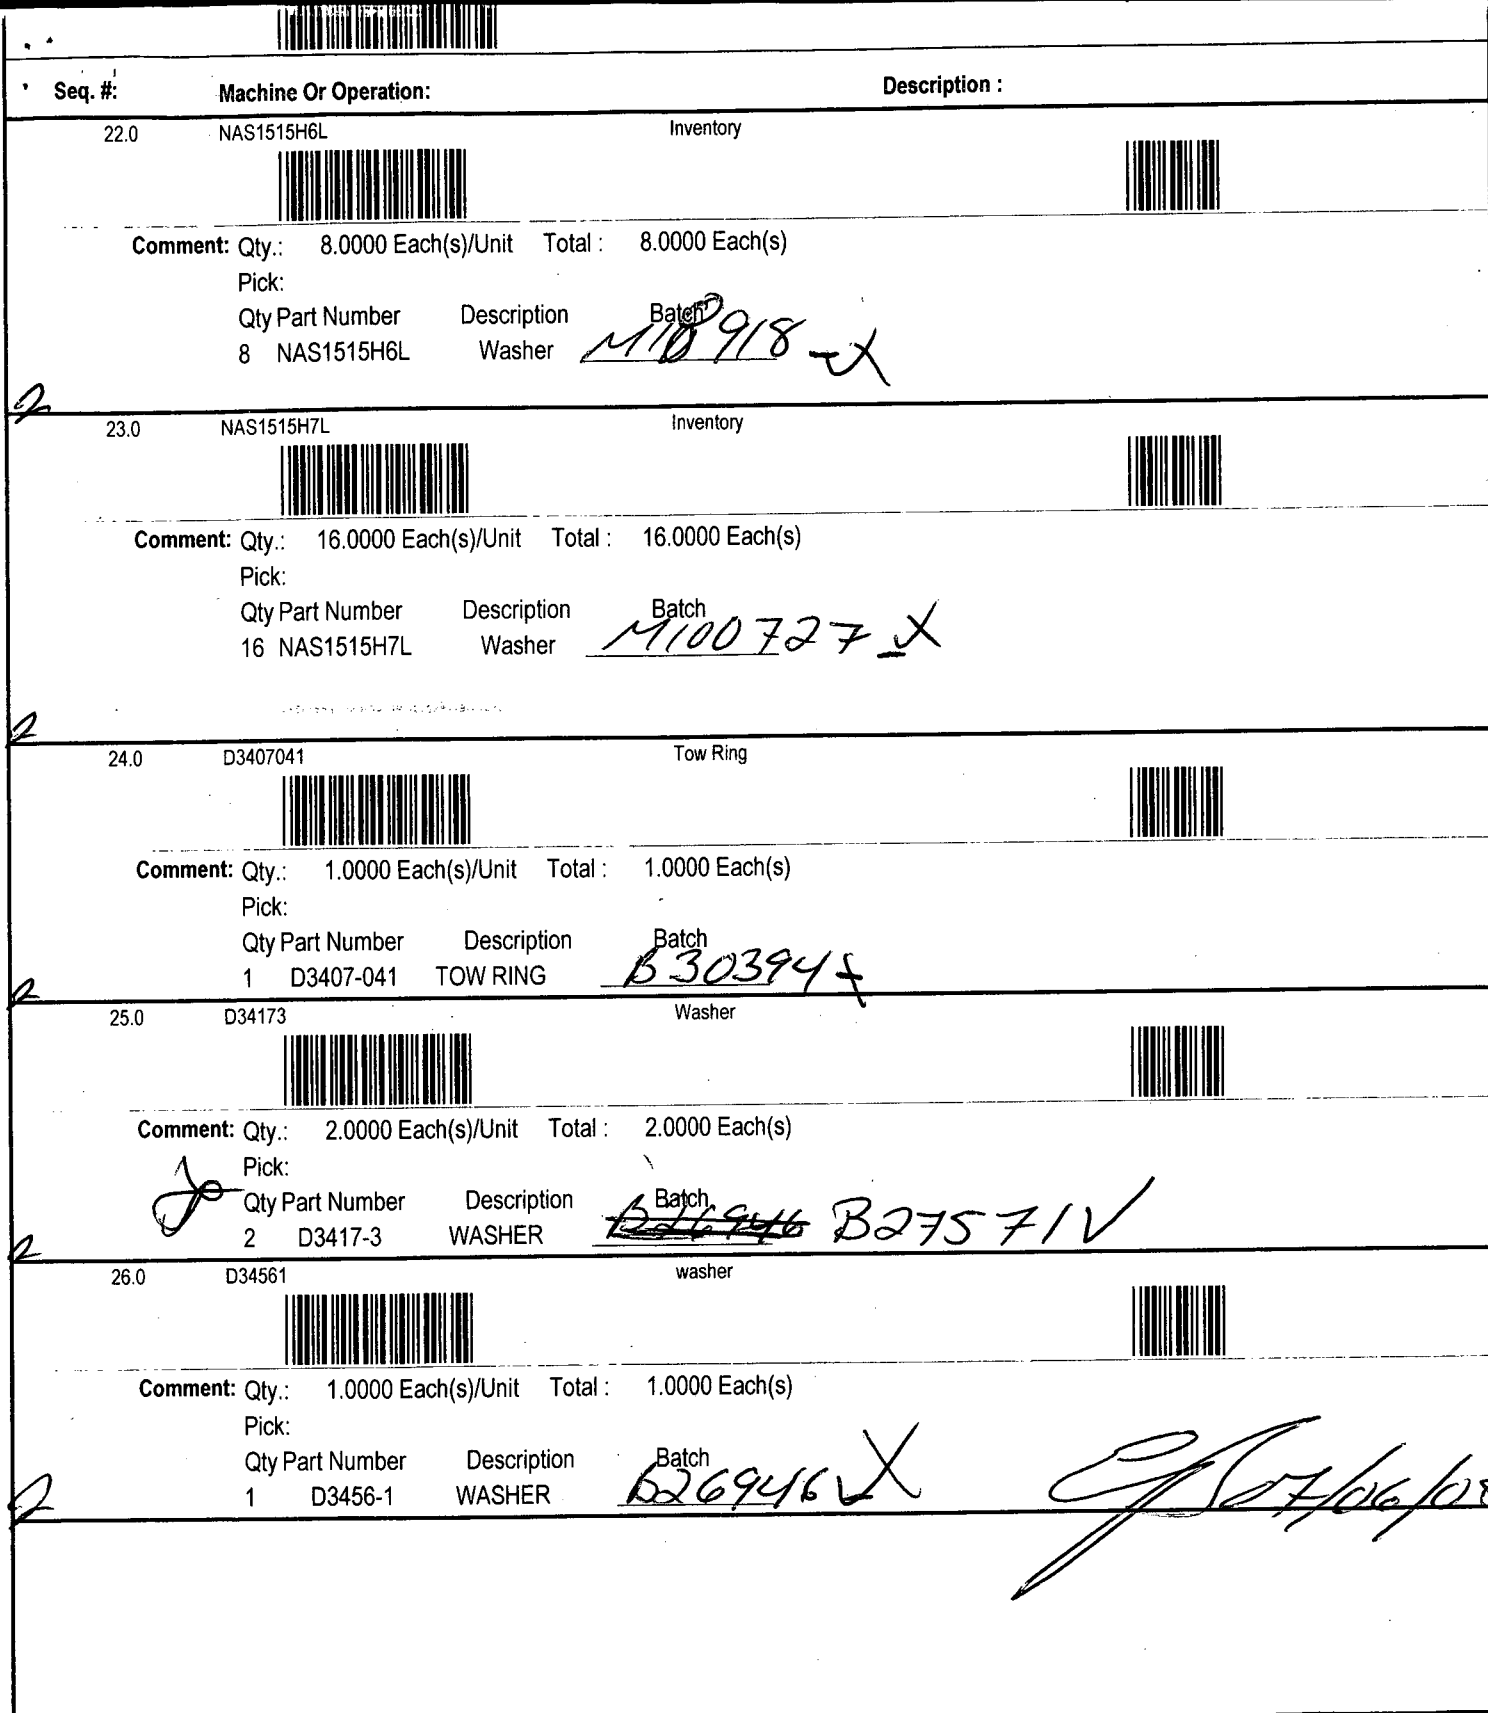 Seq. #: Machine Or Operation: Description :
22.0 NAS1515H6L Inventory
Comment: Qty.: 8.0000 Each(s)/Unit Total : 8.0000 Each(s)
Pick:
Qty Part Number Description Batch
8 NAS1515H6L Washer
23.0 NAS1515H7L Inventory
Comment: Qty.: 16.0000 Each(s)/Unit Total : 16.0000 Each(s)
Pick:
Qty Part Number Description Batch
16 NAS1515H7L Washer M100727
24.0 D3407041 Tow Ring
Comment: Qty.: 1.0000 Each(s)/Unit Total : 1.0000 Each(s)
Pick:
Qty Part Number Description Batch
1 D3407-041 TOW RING B30394
25.0 D34173 Washer
Comment: Qty.: 2.0000 Each(s)/Unit Total : 2.0000 Each(s)
Pick:
Qty Part Number Description Batch
2 D3417-3 WASHER B26946 B27571
26.0 D34561 washer
Comment: Qty.: 1.0000 Each(s)/Unit Total : 1.0000 Each(s)
Pick:
Qty Part Number Description Batch
1 D3456-1 WASHER B26946 07/06/08